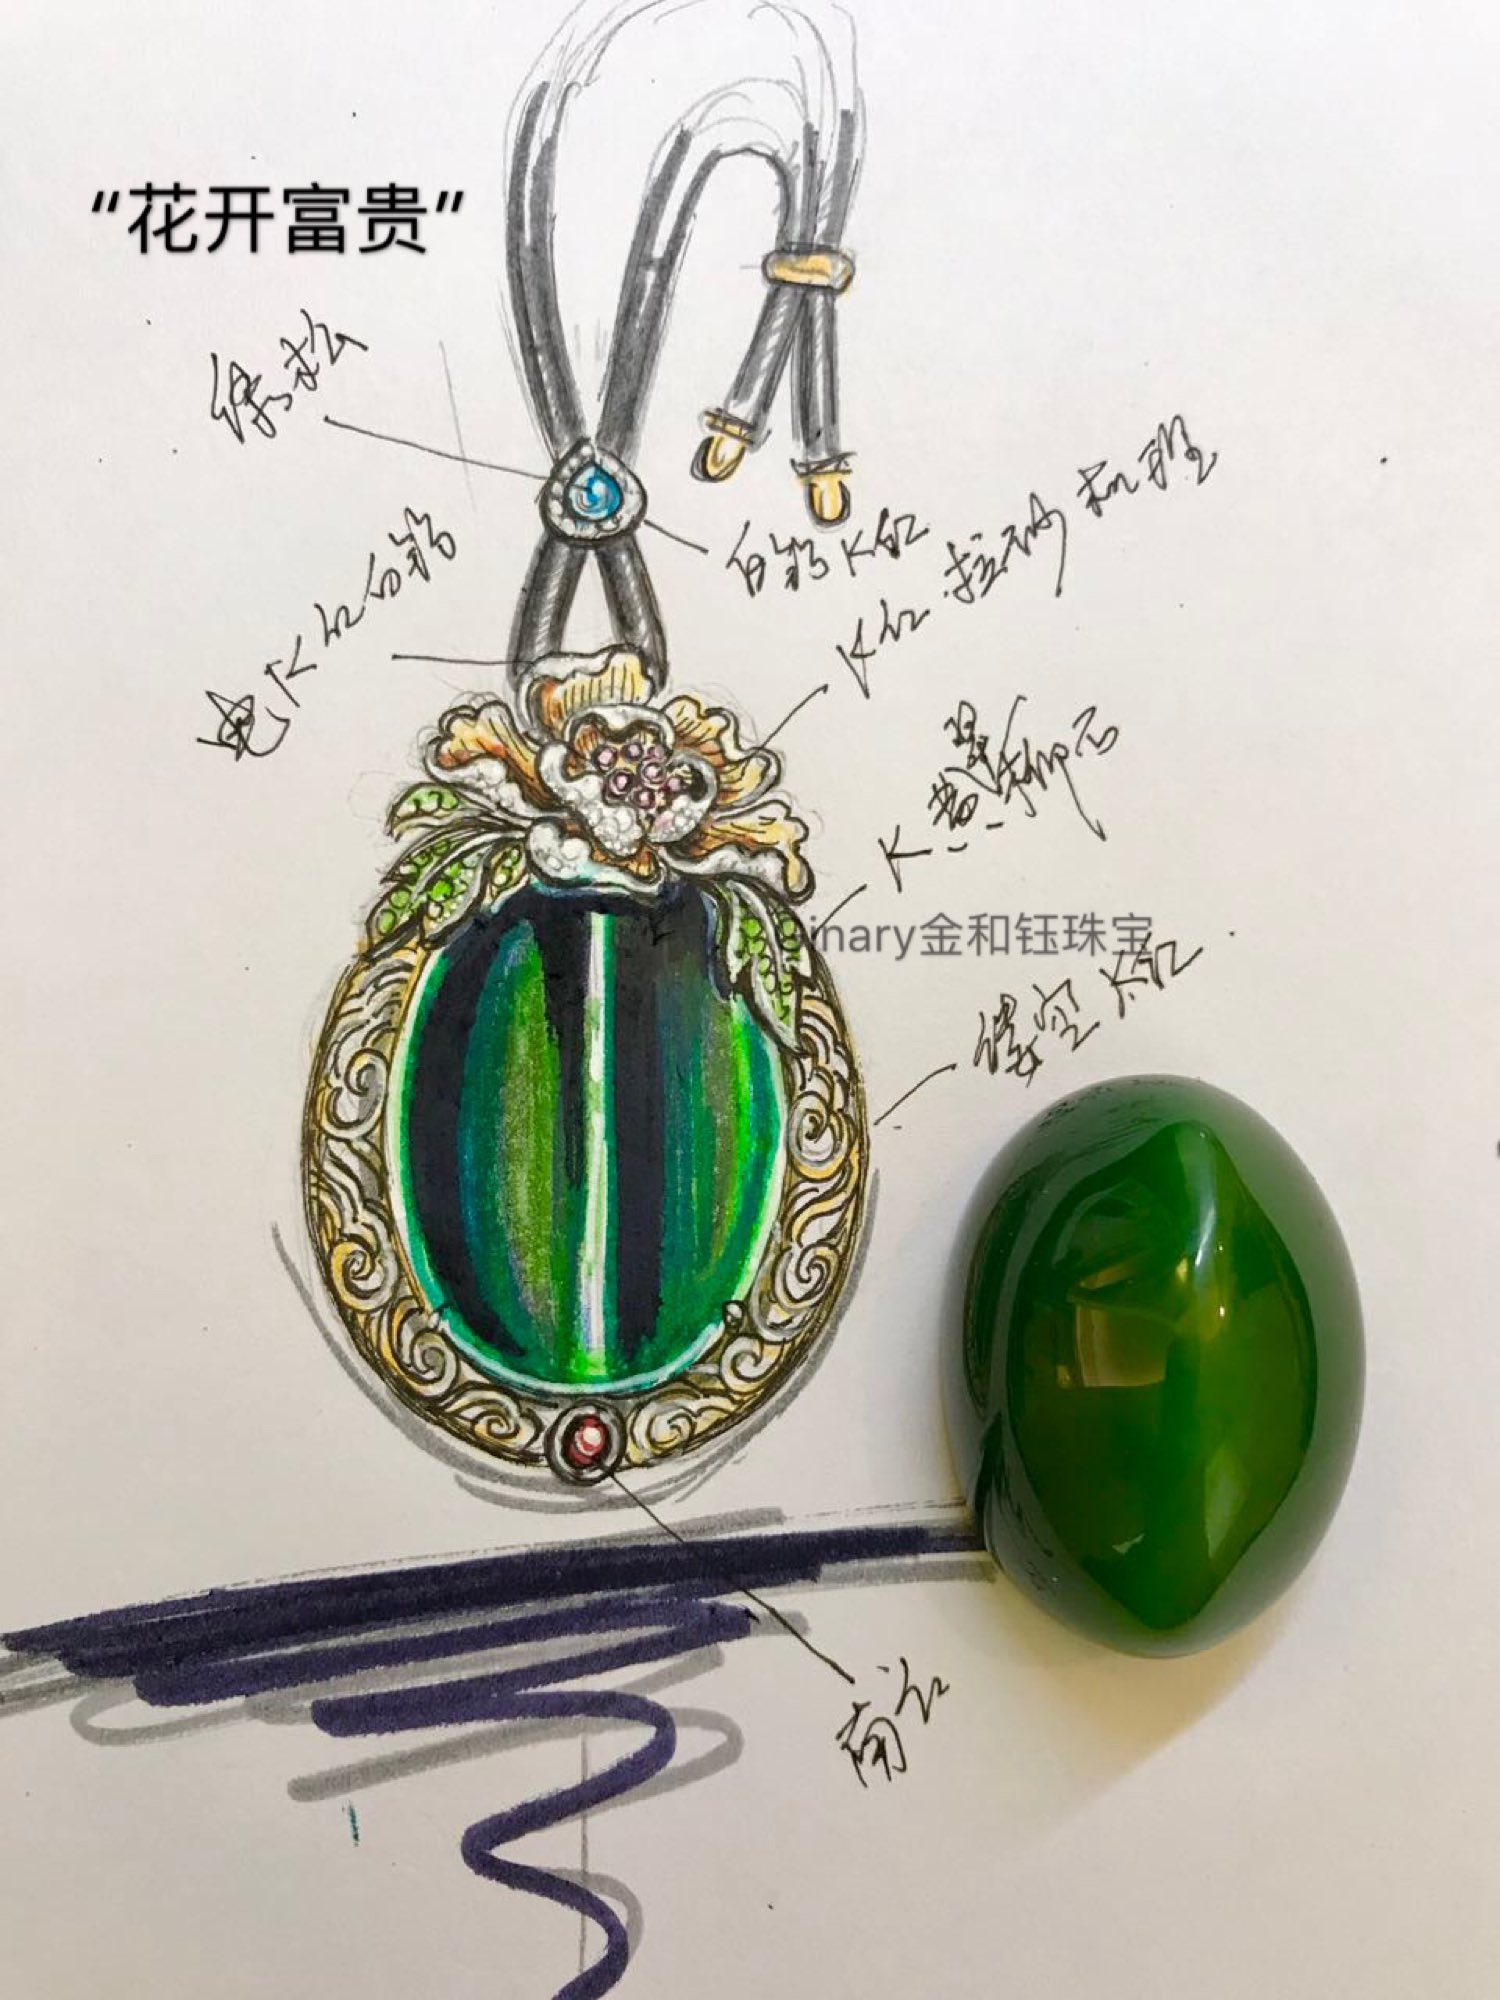 “花开富贵”
绿松
白钻K金
电K红白钻
K红拉砂机理
K黄翠榍石
Binary金和钰珠宝
镂空K红
南红